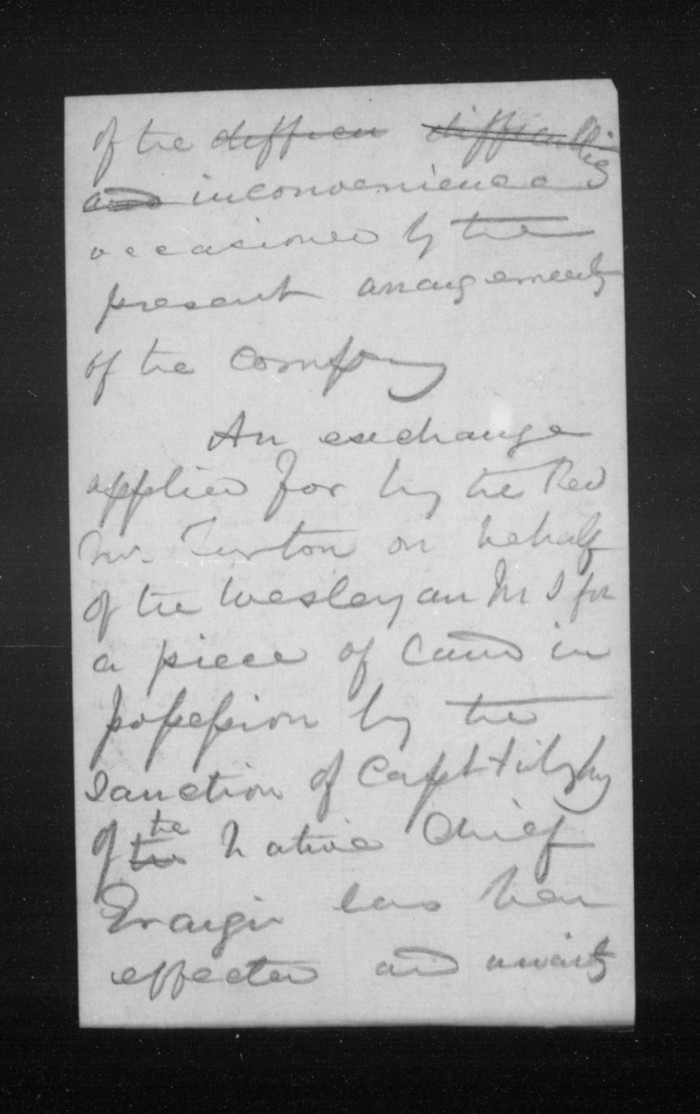 of the difficu difficultig
and inconvenience
occasioned by the
present arrangements
of the company
An exchange
applied for by the Rev
Mr. Turton on behalf
of the Wesleyan M S for
a piece of land in
possession by the
sanction of Capt Fitzroy
of the the Native Chief
has been
effected and awaits